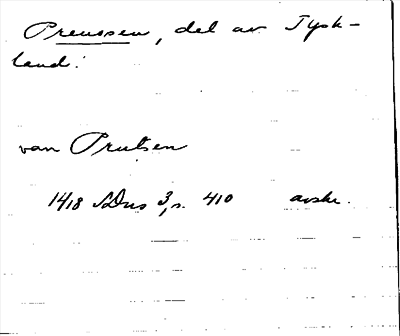 Preussen, del av Tysk-
land.
van Prutsen
1418 SDns 3, s. 410 avskr.